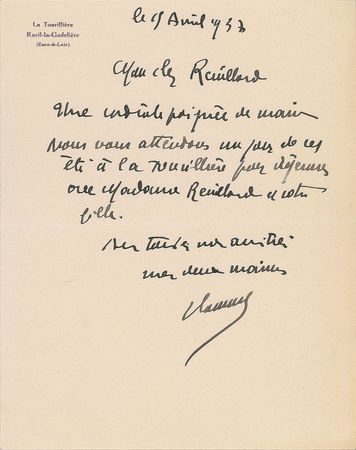 La Tourillière
Rueil-la-Gadelière
(Eure-&-Loir)
le 15 Avril 1953
Mon cher Reuillard
Une cordiale poignée de main
nous vous attendons un jour de cet
été à la Tourillière pour déjeuner
avec Madame Reuillard et votre
fille.
mes deux mains
Vlaminck